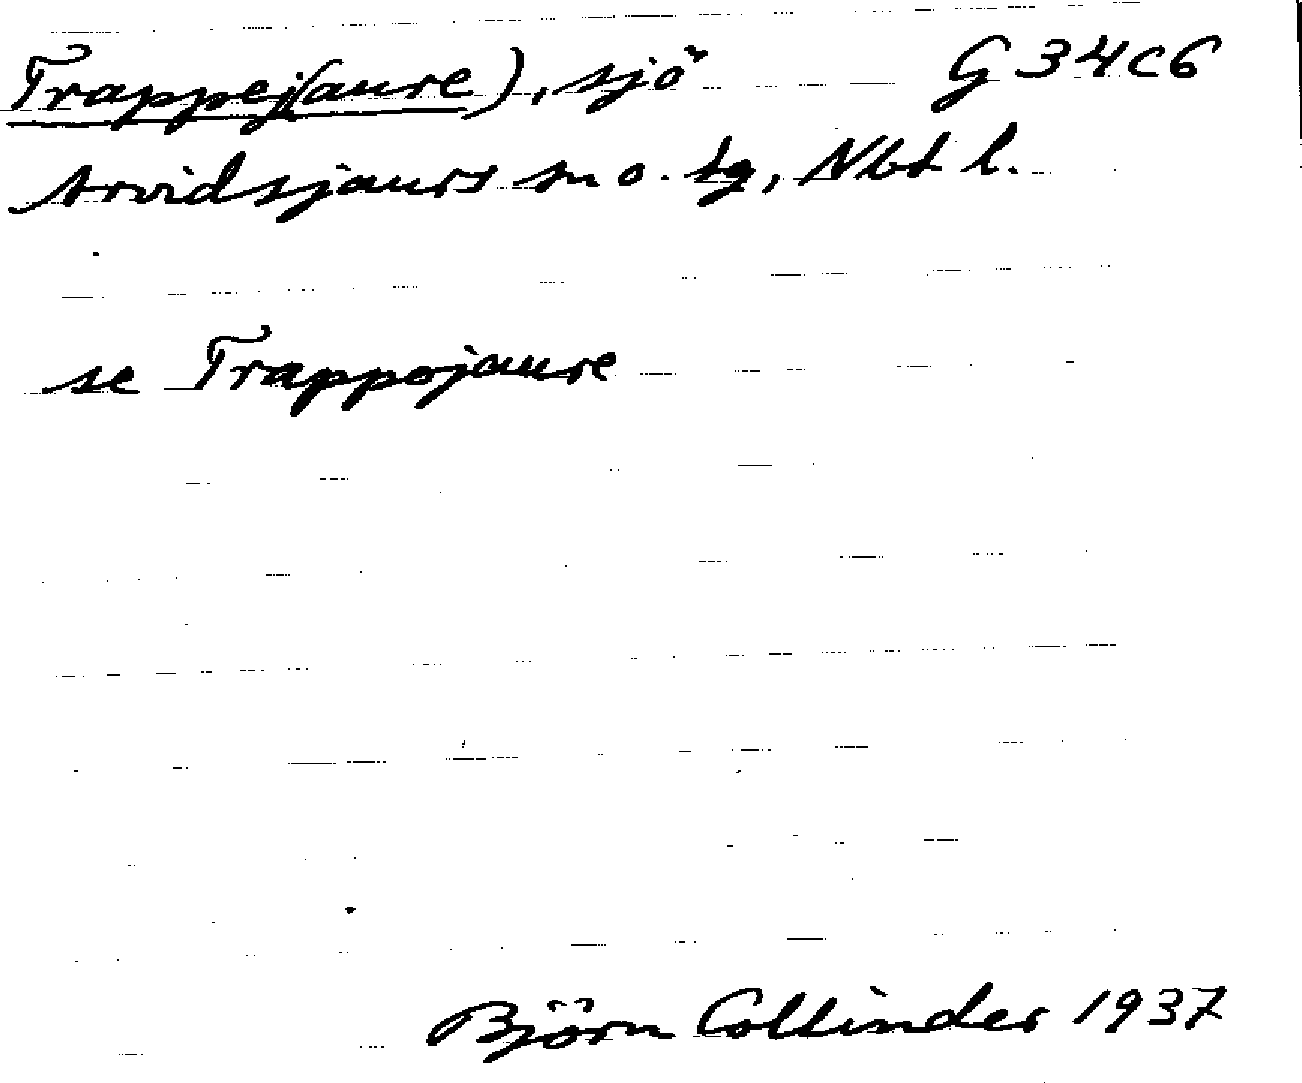 Trappej(aure), sjö G 34 C 6
Arvidsjaurs sn o. tg, Nbt l.
se Trappojaure
Björn Collinder 1937